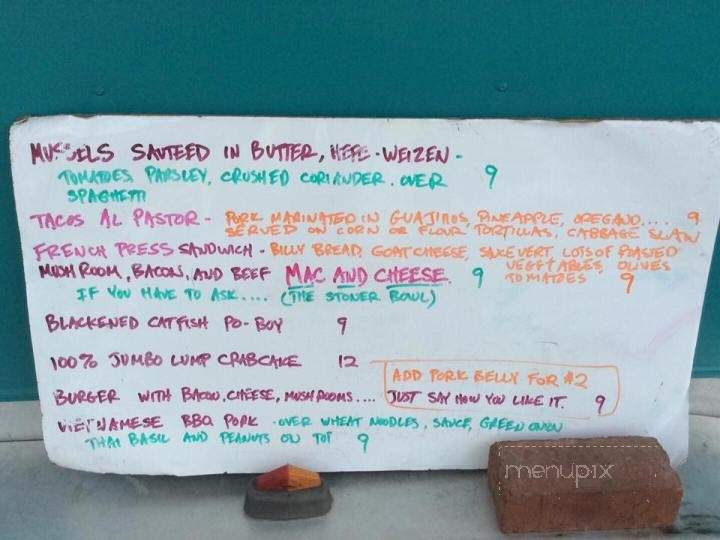 MUSSELS SAUTEED IN BUTTER, HEFE-WEIZEN -
TOMATOES, PARSLEY, CRUSHED CORIANDER. OVER 9
SPAGHETTI
TACOS AL PASTOR - PORK MARINATED IN GUAJILLOS, PINEAPPLE, OREGANO.... 9
SERVED ON CORN OR FLOUR TORTILLAS, CABBAGE SLAW
FRENCH PRESS SANDWICH - BILLY BREAD, GOAT CHEESE, LOTS OF ROASTED
VEGETABLES, OLIVES
TOMATOES 9
MUSHROOM, BACON, AND BEEF MAC AND CHEESE. 9
IF YOU HAVE TO ASK.... (THE STONER BOWL)
BLACKENED CATFISH PO-BOY 9
100% JUMBO LUMP CRABCAKE 12
ADD PORK BELLY FOR $2
BURGER WITH BACON, CHEESE, MUSHROOMS.... JUST SAY HOW YOU LIKE IT. 9
VIETNAMESE BBQ PORK - OVER WHEAT NOODLES, SAUCE, GREEN ONION
THAI BASIL AND PEANUTS ON TOP 9
menupix